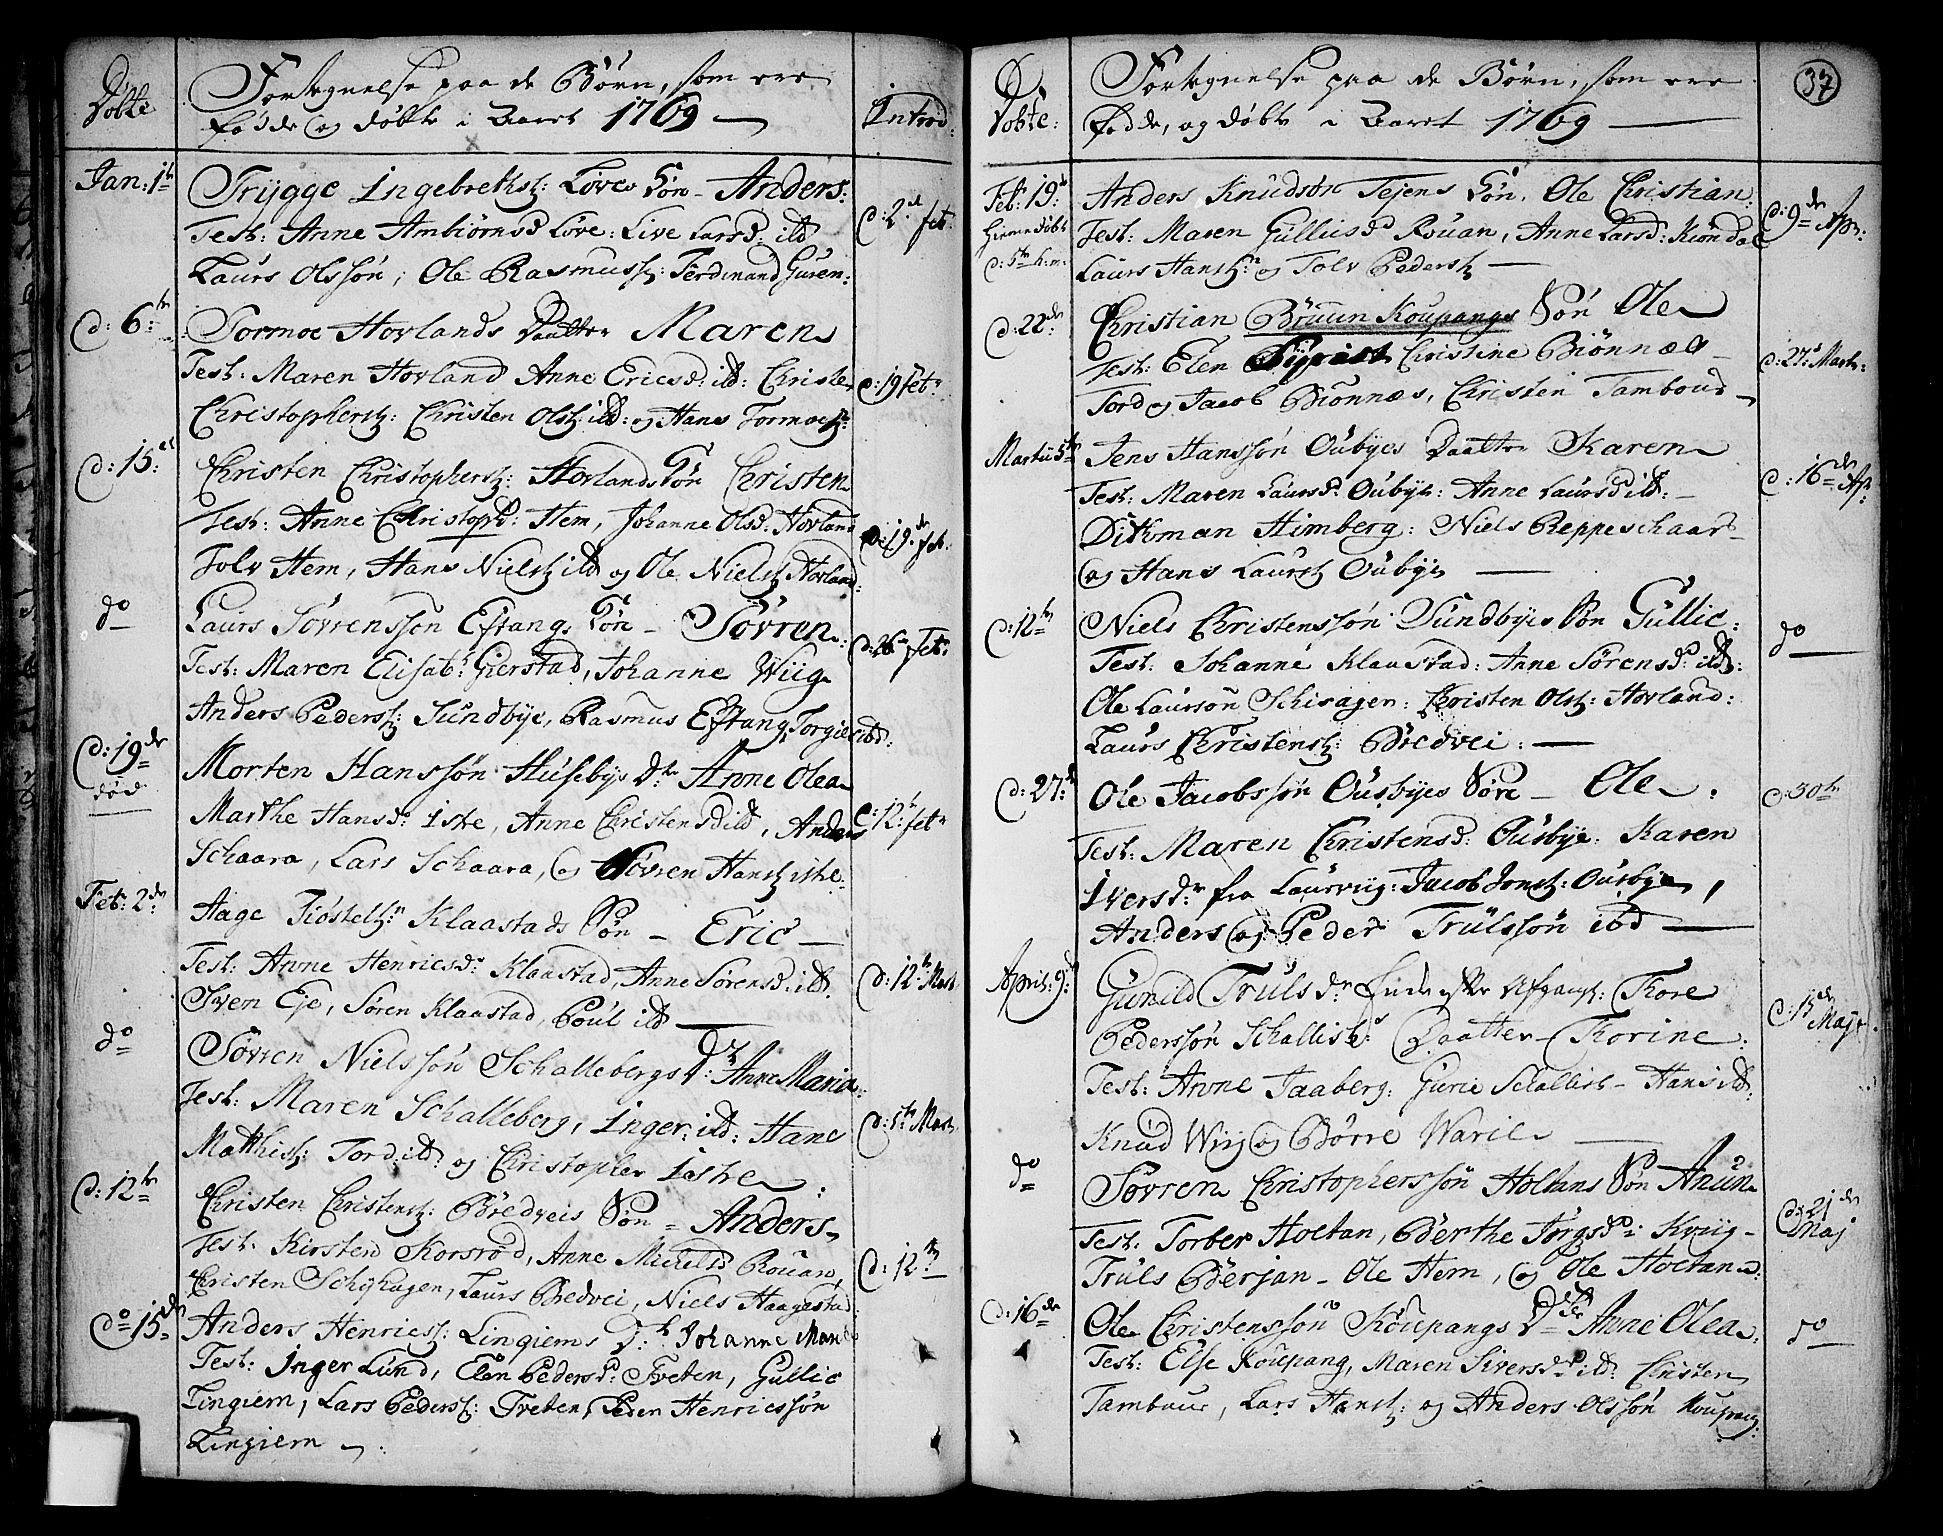 Døbte
Fortegnelse paa de Børn, som ere
fødde og døbte i Aaret 1769
Introd:
Jan: 1te
Trygge Ingebrethss: Løves Søn - Anders:
Test: Anne Ambiørnsd Løve: Live Larsd: ibd
Laurs Olssøn, Ole Rasmuss: Ferdinand Guren:
d: 2de feb.
d: 6te
Tormoe Hovlands Daatter Maren
Test: Maren Hovland Anne Ericsd: ibd: Christen
Christophers: Christen Ols: ibd: og Hans Tormoes:
d: 19 feb:
d: 15de
Christen Christophers: Hovlands Søn Christen
Test: Anne Christophd: Hem, Johanne Olsd: Hovland
Tolv Hem, Hans Niels: ibd og Ole Niels: Hovland:
d: 19de feb.
do
Laurs Sövrenssøn Eftangs Søn - Sövren:
Test: Maren Elisab: Gierstad, Johanne Wiig
Anders Peders: Sundbye, Rasmus Eftang, Torgie ibd:
d: 26de feb:
d: 19de
død
Morten Hanssøn Husebys Dtr Anne Olea
Marthe Hansdr Iste, Anne Christensd ibd, Anders
Schaara, Lars Schaara, og Sövren Hans: Iste
d: 12te feb
Feb: 2de
Aage Kiøstels: Klaastads Søn - Eric -
Test: Anne Henricsdr Klaastad, Anne Sörensd: ibd.
Sven Eje, Søren Klaastad, Poul ibd
d: 12te Mart.
do
Sövren Nielssøn Schallebergs Dtr: Anne Maria:
Test: Maren Schalleberg, Inger: ibd: Hans
Matthis: Tord: ibd: og Christopher Istre:
d: 5te Mart.
d: 12te
Christen Christens: Bredveis Søn = Anders
Test: Kirsten Korsrød, Anne Michelsd Rouan,
Christen Schishagen, Laurs Bredvei, Niels Haagestad
d: 12te
do 15de
Anders Henrics: Lingiems Dtr Johanne Marie
Test: Inger Lund, Elen Pedersdr: Tveten, Gullic
Lingiem, Lars Peders: Tveten, Peder Henricssøn
Lingiem
Døbte:
Fortegnelse paa de Børn, som ere
fødde, og døbte i Aaret 1769
37
Feb: 19de
Hiemedøbt
d: 5te h: m:
Anders Knudsøn Tejens Søn, Ole Christian
Test: Maren Gullicsdr Rouan, Anne Larsd: Kiøndal
Laurs Hans: og Tolv Peders:
d: 9de Apr:
d: 22de
Christian Bruun Koupangs Søn Ole
Test: Elen Christine Biönnæs
Tord og Jacob Biönnæs, Christen Tambour
d: 27de Mart:
Martii 5te
Jens Hanssøn Oubyes Daatter Karen
Test: Maren Laursdr Oubye: Anne Laursd ibd: -
Ditvman Himberg: Niels Reppeschaar
og Hans Laurs: Oubye
d: 16de Ap:
d: 12te
Niels Christenssøn Sundbyes Søn Gullic:
Test: Johanne Klaastad: Anne Sörensdr ibd:
Ole Laursøn Schisagen: Christen Ols: Hovland:
Laurs Christens: Bredvei:
do
d: 27de
Ole Jacobssøn Ousbyes Søn - Ole.
Test: Maren Christensd: Ousbye. Karen
Iversdr fra Laurviig: Jacob Jons: Ousbye,
Anders og Peder Trulssøn ibd
d: 30te
April: 9de
Gunild Truls dr Tore
Pederssøn Schallists Daatter Thorine:
Test: Anne Taaberg: Gurie Schallist - Hans ibd:
Knud Wiig og Börre Waril
d: 15de Maj
do
Sövren Christopherssøn Holtans Søn Anun
Test: Torber Holtan, Berthe Jörgsdr: Kviig -
Truls Berjan - Ole Hem, og Ole Holtan
d: 21de Maj
d: 16de
Ole Christenssøn Koupangs Dtter Anne Olea
Test: Else Koupang, Maren Siversdr ibd: Christen
Tambour, Lars Hans: og Anders Olssøn Koupang:
do